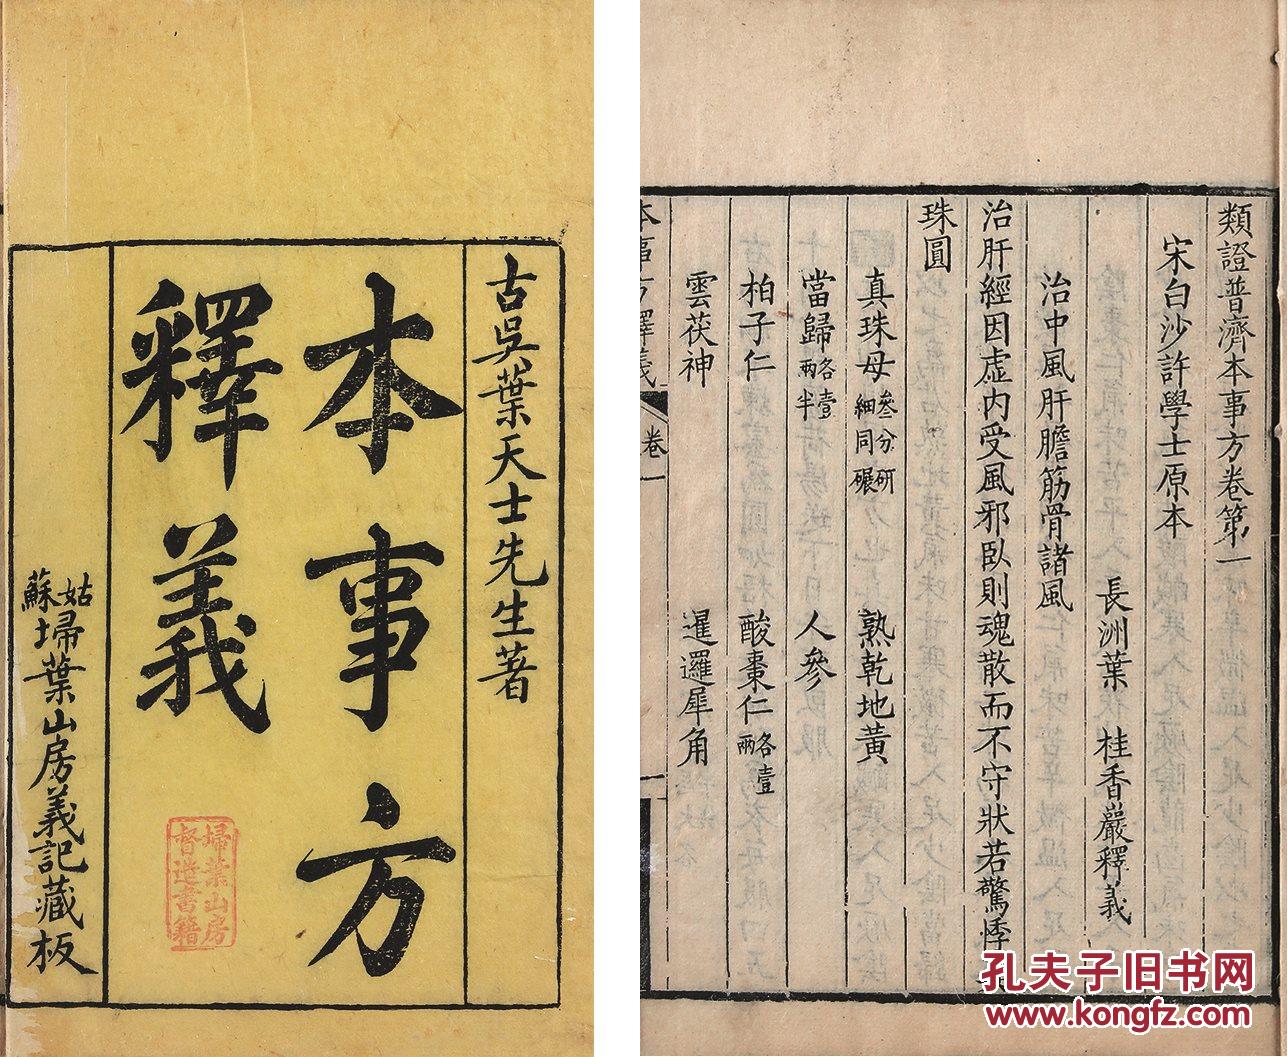 古吳葉天士先生著
本事方
釋義
姑蘇埽葉山房義記藏板
埽葉山房
督造書籍
類證普濟本事方卷第一
宋白沙許學士原本
長洲葉 桂香巖釋義
治中風肝膽筋骨諸風
治肝經因虛內受風邪臥則魂散而不守狀若驚悸
珠圓
真珠母叄分研細同碾 熟乾地黃
當歸各壹兩半 人參
柏子仁 酸棗仁各壹兩
雲茯神 暹邏犀角
本事方釋義 卷一
孔夫子旧书网
www.kongfz.com